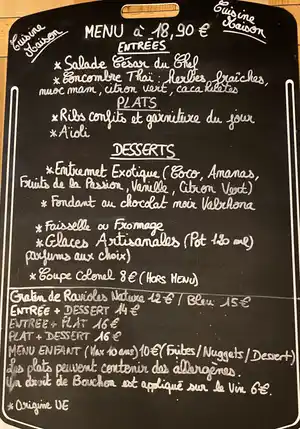 Cuisine Maison
Cuisine Maison
MENU à 18,90 €
ENTRÉES
* Salade César du Chef
* Concombre Thaï : herbes fraîches,
nuoc mam, citron vert, cacahuètes
PLATS
* Ribs confits et garniture du jour
* Aïoli
DESSERTS
* Entremet Exotique (Coco, Ananas,
Fruits de la Passion, Vanille, Citron Vert)
* Fondant au chocolat noir Valrhona
* Faisselle ou Fromage
* Glaces Artisanales (Pot 120 ml)
parfums aux choix)
* Coupe Colonel 8€ (HORS MENU)
Gratin de Ravioles Nature 12€ / Bleu 15€
ENTRÉE + DESSERT 14€
ENTREE + PLAT 16€
PLAT + DESSERT 16€
MENU ENFANT (Max 10 ans) 10€ (Frites/Nuggets/Dessert)
Les plats peuvent contenir des allergènes.
Un droit de Bouchon est appliqué sur le Vin 6€.
* Origine UE